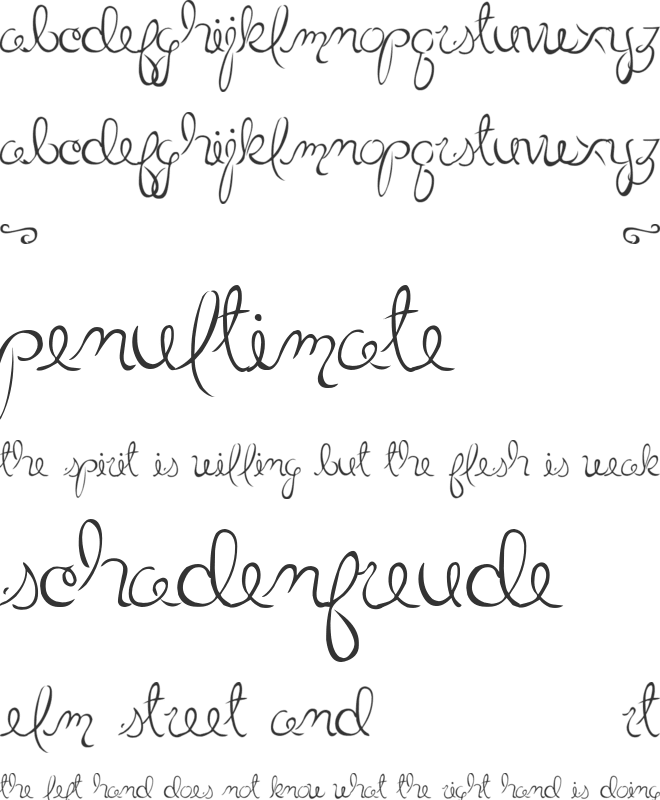 abcdefghijklmnopqrstuvwxyz
abcdefghijklmnopqrstuvwxyz
penultimate
the spirit is willing but the flesh is weak
schadenfreude
elm street and rt
the left hand does not know what the right hand is doing